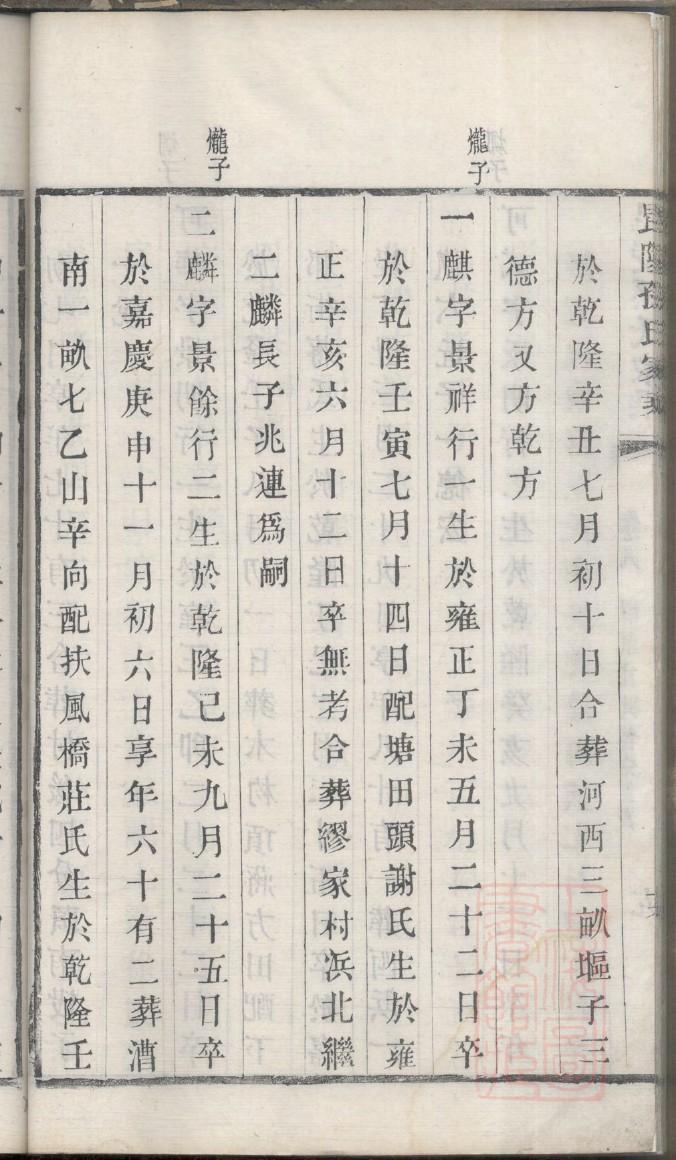 毘陵孫氏家乘
於乾隆辛丑七月初十日合葬河西三畝塸子三
德方又方乾方
爖子
一麒字景祥行一生於雍正丁未五月二十二日卒
於乾隆壬寅七月十四日配塘田頭謝氏生於雍
正辛亥六月十二日卒無考合葬繆家村浜北繼
二麟長子兆連爲嗣
爖子
二麟字景餘行二生於乾隆己未九月二十五日卒
於嘉慶庚申十一月初六日享年六十有二葬漕
南一畝七乙山辛向配扶風橋莊氏生於乾隆壬